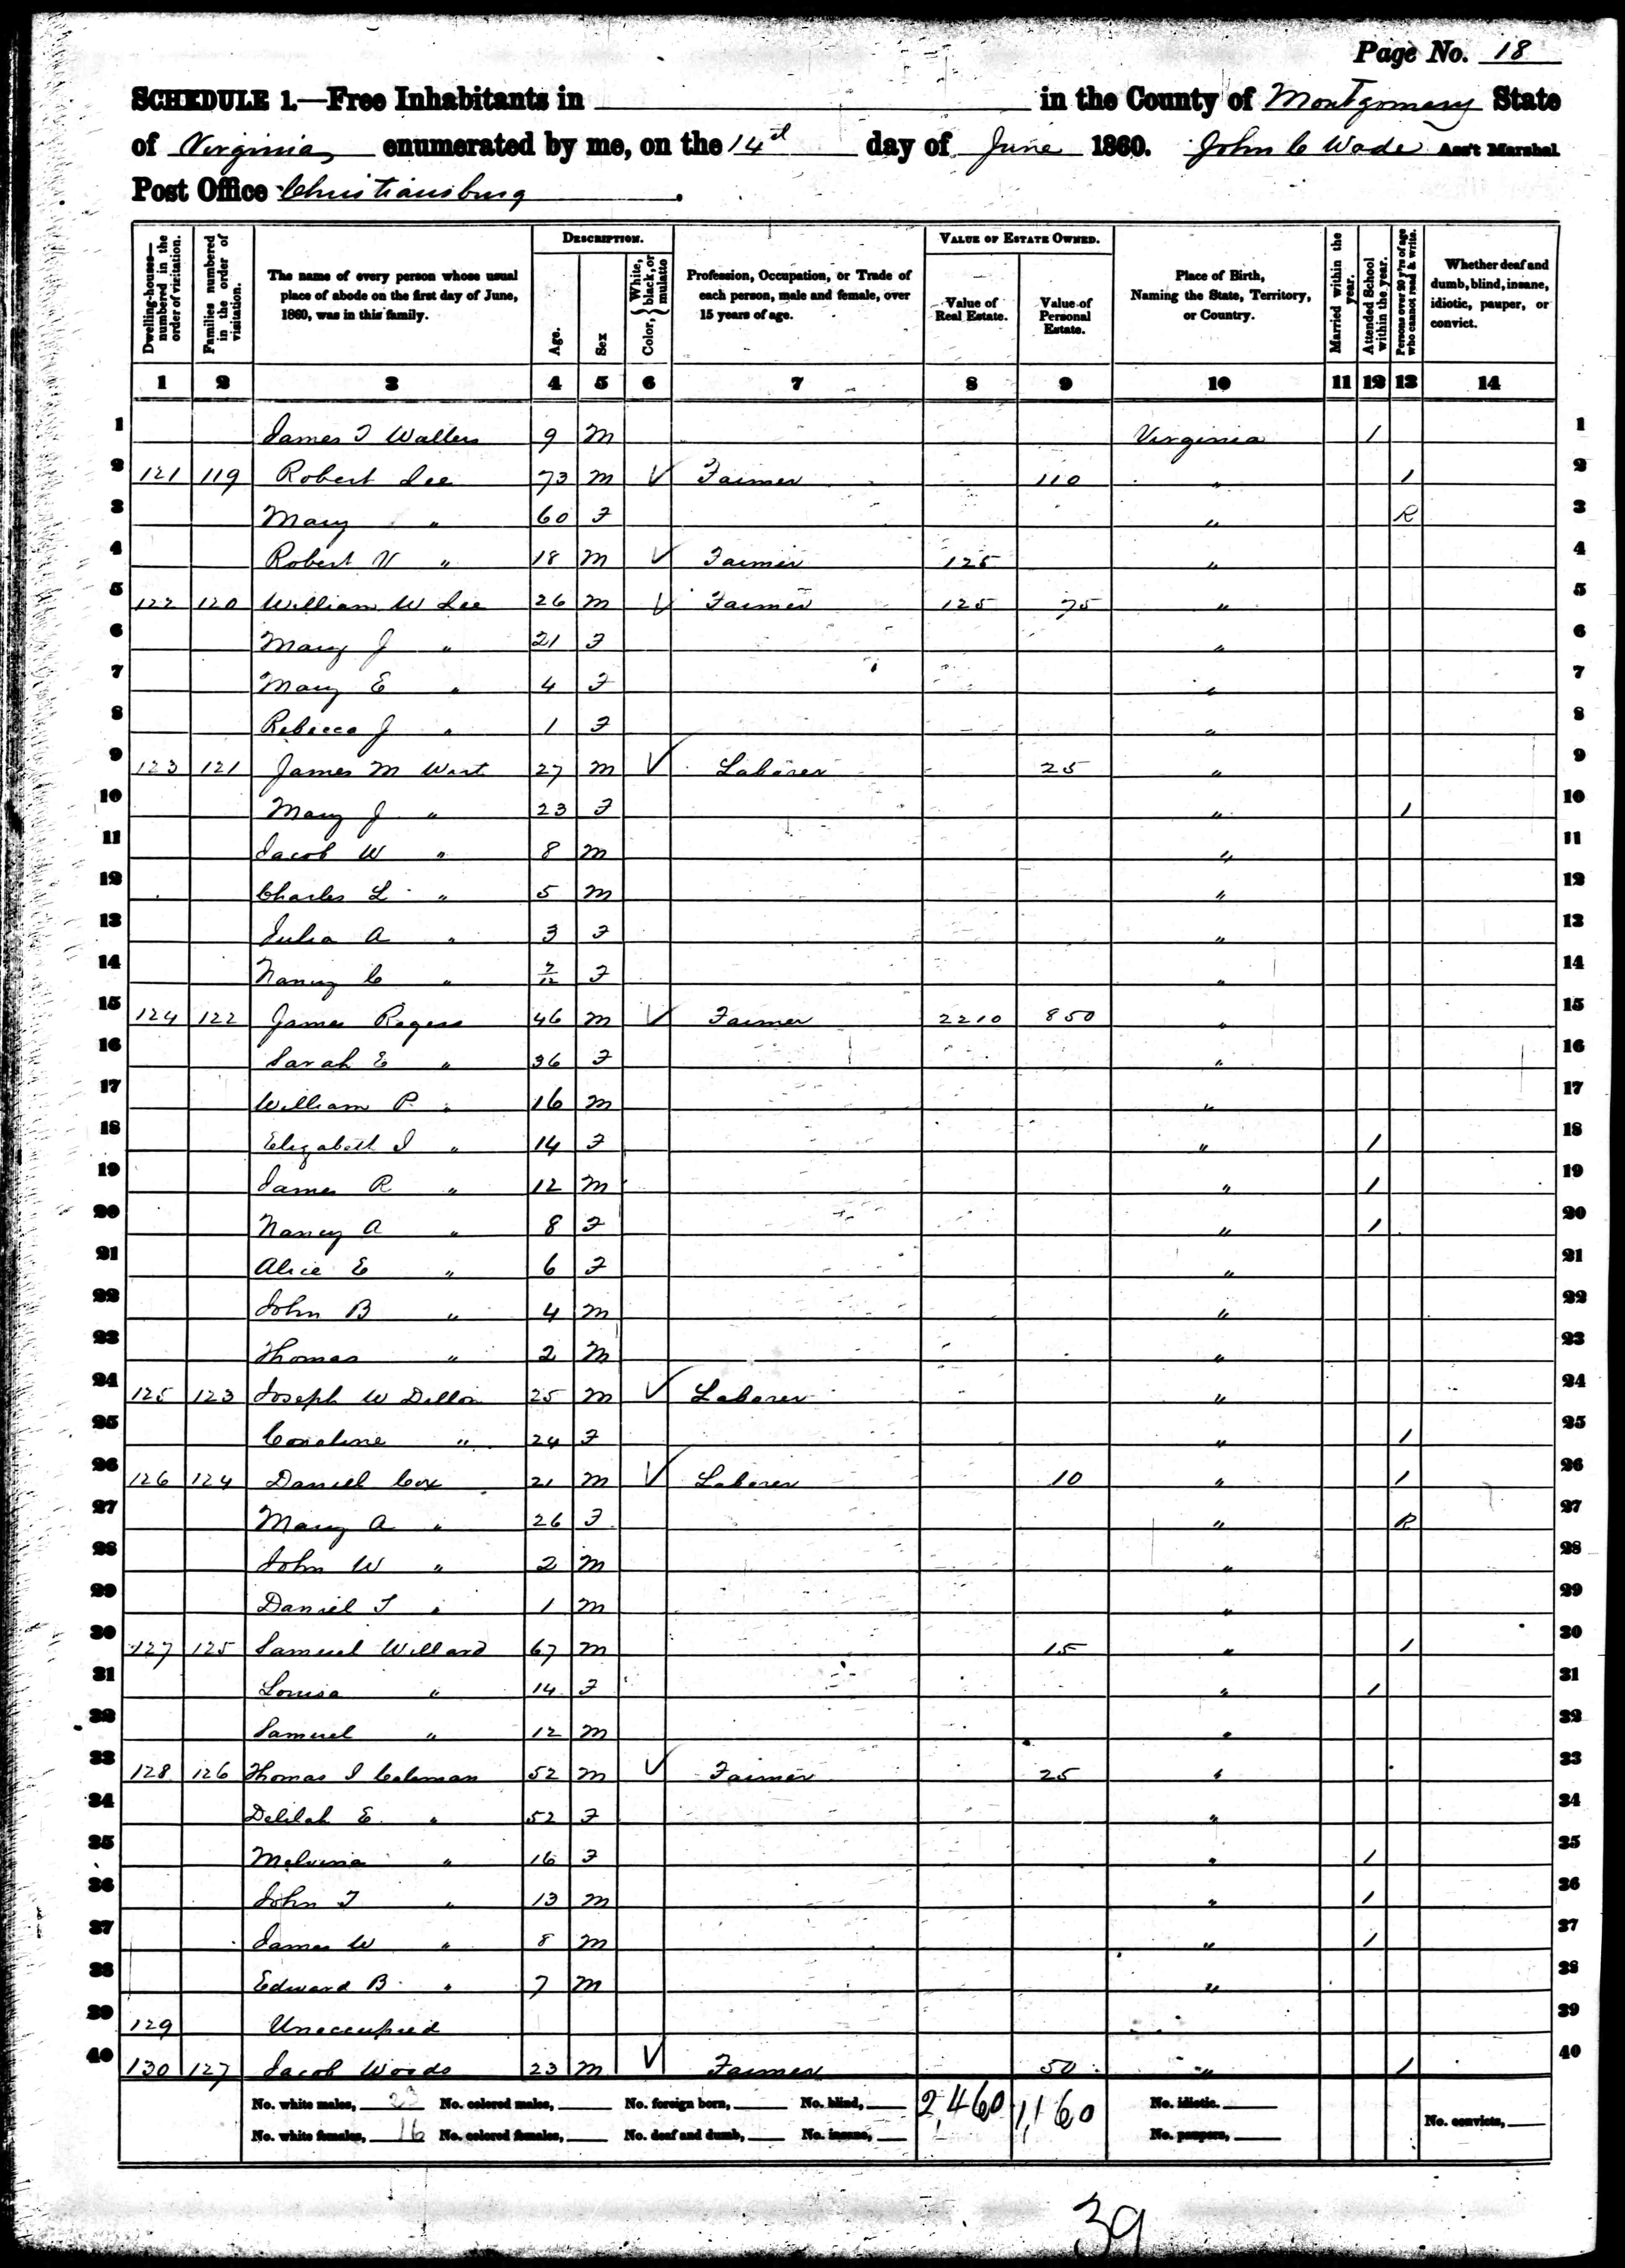 Page No. 18
SCHEDULE 1.—Free Inhabitants in in the County of Montgomery State
of Virginia enumerated by me, on the 14th day of June 1860. John C Wade Ass't Marshal
Post Office Christiansburg.
Dwelling-houses—numbered in the order of visitation. Families numbered in the order of visitation. The name of every person whose usual place of abode on the first day of June, 1860, was in this family. DESCRIPTION. Age. Sex Color, { White, black, or mulatto Profession, Occupation, or Trade of each person, male and female, over 15 years of age. VALUE OF ESTATE OWNED. Value of Real Estate. Value of Personal Estate. Place of Birth, Naming the State, Territory, or Country. Married within the year. Attended School within the year. Persons over 20 y'rs of age who cannot read & write. Whether deaf and dumb, blind, insane, idiotic, pauper, or convict.
1 2 3 4 5 6 7 8 9 10 11 12 13 14
1 James T Walters 9 M Virginia / 1
2 121 119 Robert Lee 73 M V Farmer 110 " / 2
3 Mary " 60 F " R 3
4 Robert V " 18 M V Farmer 125 " 4
5 122 120 William W Lee 26 M V Farmer 125 75 " 5
6 Mary J " 21 F " 6
7 Mary E " 4 F " 7
8 Rebecca J " 1 F " 8
9 123 121 James M Wirt 27 M V Laborer 25 " 9
10 Mary J " 23 F " / 10
11 Jacob W " 8 M " 11
12 Charles L " 5 M " 12
13 Julia A " 3 F " 13
14 Nancy C " 7/12 F " 14
15 124 122 James Rogers 46 M V Farmer 2210 850 " 15
16 Sarah E " 36 F " 16
17 William P " 16 M " 17
18 Elizabeth I " 14 F " / 18
19 James R " 12 M " / 19
20 Nancy A " 8 F " / 20
21 Alice E " 6 F " 21
22 John B " 4 M " 22
23 Thomas " 2 M " 23
24 125 123 Joseph W Dillon 25 M V Laborer " 24
25 Caroline " 24 F " / 25
26 126 124 Daniel Cox 21 M V Laborer 10 " / 26
27 Mary A " 26 F " R 27
28 John W " 2 M " 28
29 Daniel T " 1 M " 29
30 127 125 Samuel Willard 67 M 15 " / 30
31 Louisa " 14 F " / 31
32 Samuel " 12 M " 32
33 128 126 Thomas I Coleman 52 M V Farmer 25 " 33
34 Delilah E " 52 F " 34
35 Melvina " 16 F " / 35
36 John T " 13 M " / 36
37 James W " 8 M " / 37
38 Edward B " 7 M " 38
39 129 Unoccupied 39
40 130 127 Jacob Woods 23 M V Farmer 50 " / 40
No. white males, 23 No. colored males, No. foreign born, No. blind, 2,460 1,160 No. idiotic.
No. white females, 16 No. colored females, No. deaf and dumb, No. insane, No. paupers, No. convicts,
39